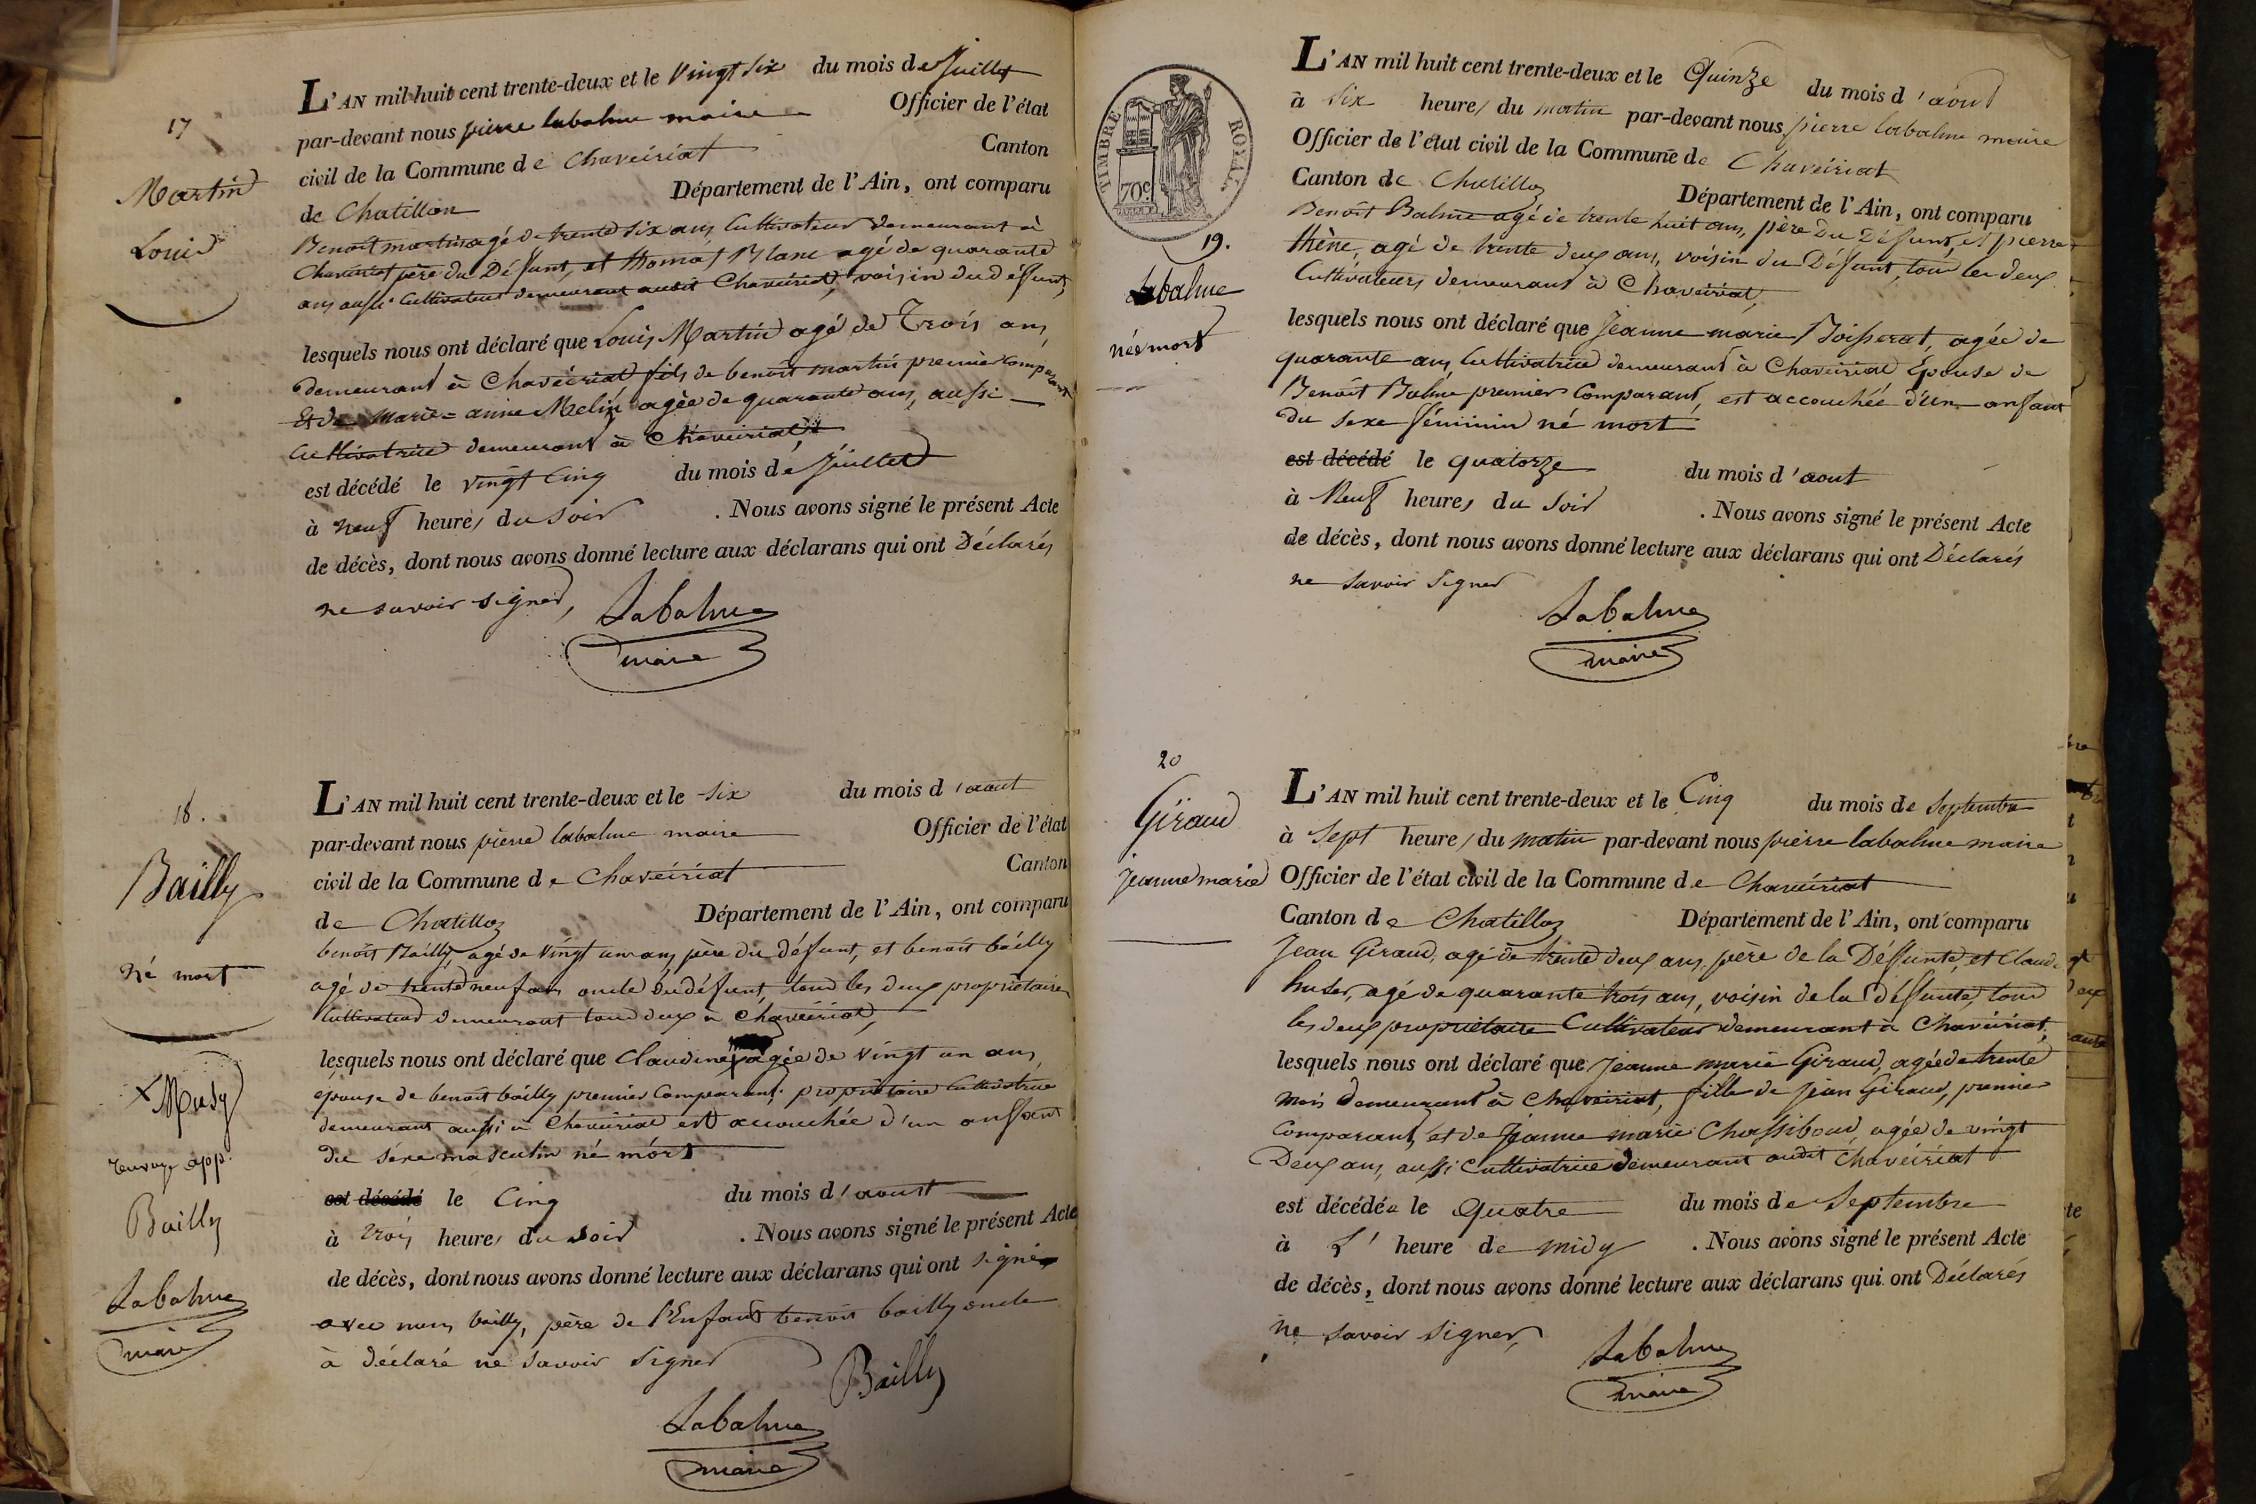 17
Martin
Louis
L'AN mil huit cent trente-deux et le vingt six du mois de Juillet
par-devant nous pierre labalme maire Officier de l'état
civil de la Commune de Chaveiriat Canton
de Chatillon Département de l'Ain, ont comparu
Benoît martin agé de trente six ans Cultivateur demeurant à
Chaveiriat père du Défunt, et thomas Blanc agé de quarante
ans aussi Cultivateur demeurant audit Chaveiriat, voisin du défunt,
lesquels nous ont déclaré que Louis Martin agé de Trois ans,
demeurant à Chavéiriat fils de benoît martin premier Comparant
Et de Marie-anne Melin agée de quarante ans, aussi
Cultivatrice demeurant à Chaveiriat,
est décédé le vingt Cinq du mois de Juillet
à neuf heures du Soir . Nous avons signé le présent Acte
de décès, dont nous avons donné lecture aux déclarans qui ont Déclarés
ne savoir signer,
Labalme
maire
18.
Bailly
né mort
L'AN mil huit cent trente-deux et le six du mois d'aout
par-devant nous pierre labalme maire Officier de l'état
civil de la Commune de Chavéiriat Canton
de Chatillon Département de l'Ain, ont comparu
benoît Bailly, agé de vingt un ans, père du défunt, et benoît bailly
agé de trente neuf ans oncle du défunt, tous les deux propriétaires
Cultivateurs demeurant tous deux à Chavéiriat,
lesquels nous ont déclaré que Claudine x agée de vingt un ans,
épouse de benoît bailly premier Comparant, propriétaire Cultivatrice
demeurant aussi à Chaveiriat est accouchée d'un anfant
du séxe masculin né mort
est décédé le Cinq du mois d'aoust
à trois heures du soir . Nous avons signé le présent Acte
de décès, dont nous avons donné lecture aux déclarans qui ont signé
avec nous bailly, père de l'Enfant benoît bailly oncle
à déclaré ne savoir signer
Bailly
Labalme
maire
x Musy
renvoy app.
Bailly
Labalme
maire
TIMBRE ROYAL
70 c
19.
Labalme
née mort
L'AN mil huit cent trente-deux et le Quinze du mois d'aout
à six heures du matin par-devant nous pierre labalme maire
Officier de l'état civil de la Commune de Chavéiriat
Canton de Chatillon Département de l'Ain, ont comparu
Benoît Balme agé de trente huit ans, père du Défunt, et pierre
thène, agé de trente deux ans, voisin du Défunt, tous les deux
Cultivateurs demeurant à Chaveiriat,
lesquels nous ont déclaré que Jeanne marie Boisserat, agée de
quarante ans, Cultivatrice demeurant à Chaveiriat Epouse de
Benoît Balme premier Comparant, est accouchée d'un anfant
du sexe féminin né mort
est décédé le quatorze du mois d'aout
à Neuf heures du Soir . Nous avons signé le présent Acte
de décès, dont nous avons donné lecture aux déclarans qui ont Déclarés
ne savoir signer
Labalme
maire
20
Giraud
jeanne marie
L'AN mil huit cent trente-deux et le Cinq du mois de Septembre
à Sept heures du matin par-devant nous pierre labalme maire
Officier de l'état civil de la Commune de Chaveiriat
Canton de Chatillon Département de l'Ain, ont comparu
Jean Giraud, agé de trente deux ans, père de la Défunte, et Claude
agé de quarante trois ans, voisin de la défunte, tous
les deux propriétaire Cultivateur demeurant à Chavéiriat,
lesquels nous ont déclaré que Jeanne marie Giraud, agée de trente
mois demeurant à Chaveiriat, fille de Jean Giraud, premier
Comparant, et de Jeanne marie Chassiboud, agée de vingt
Deux ans, aussi Cultivatrice demeurant audit Chavéiriat
est décédée le Quatre du mois de Septembre
à L' heure de midy . Nous avons signé le présent Acte
de décès, dont nous avons donné lecture aux déclarans qui ont Déclarés
ne savoir signer,
Labalme
maire